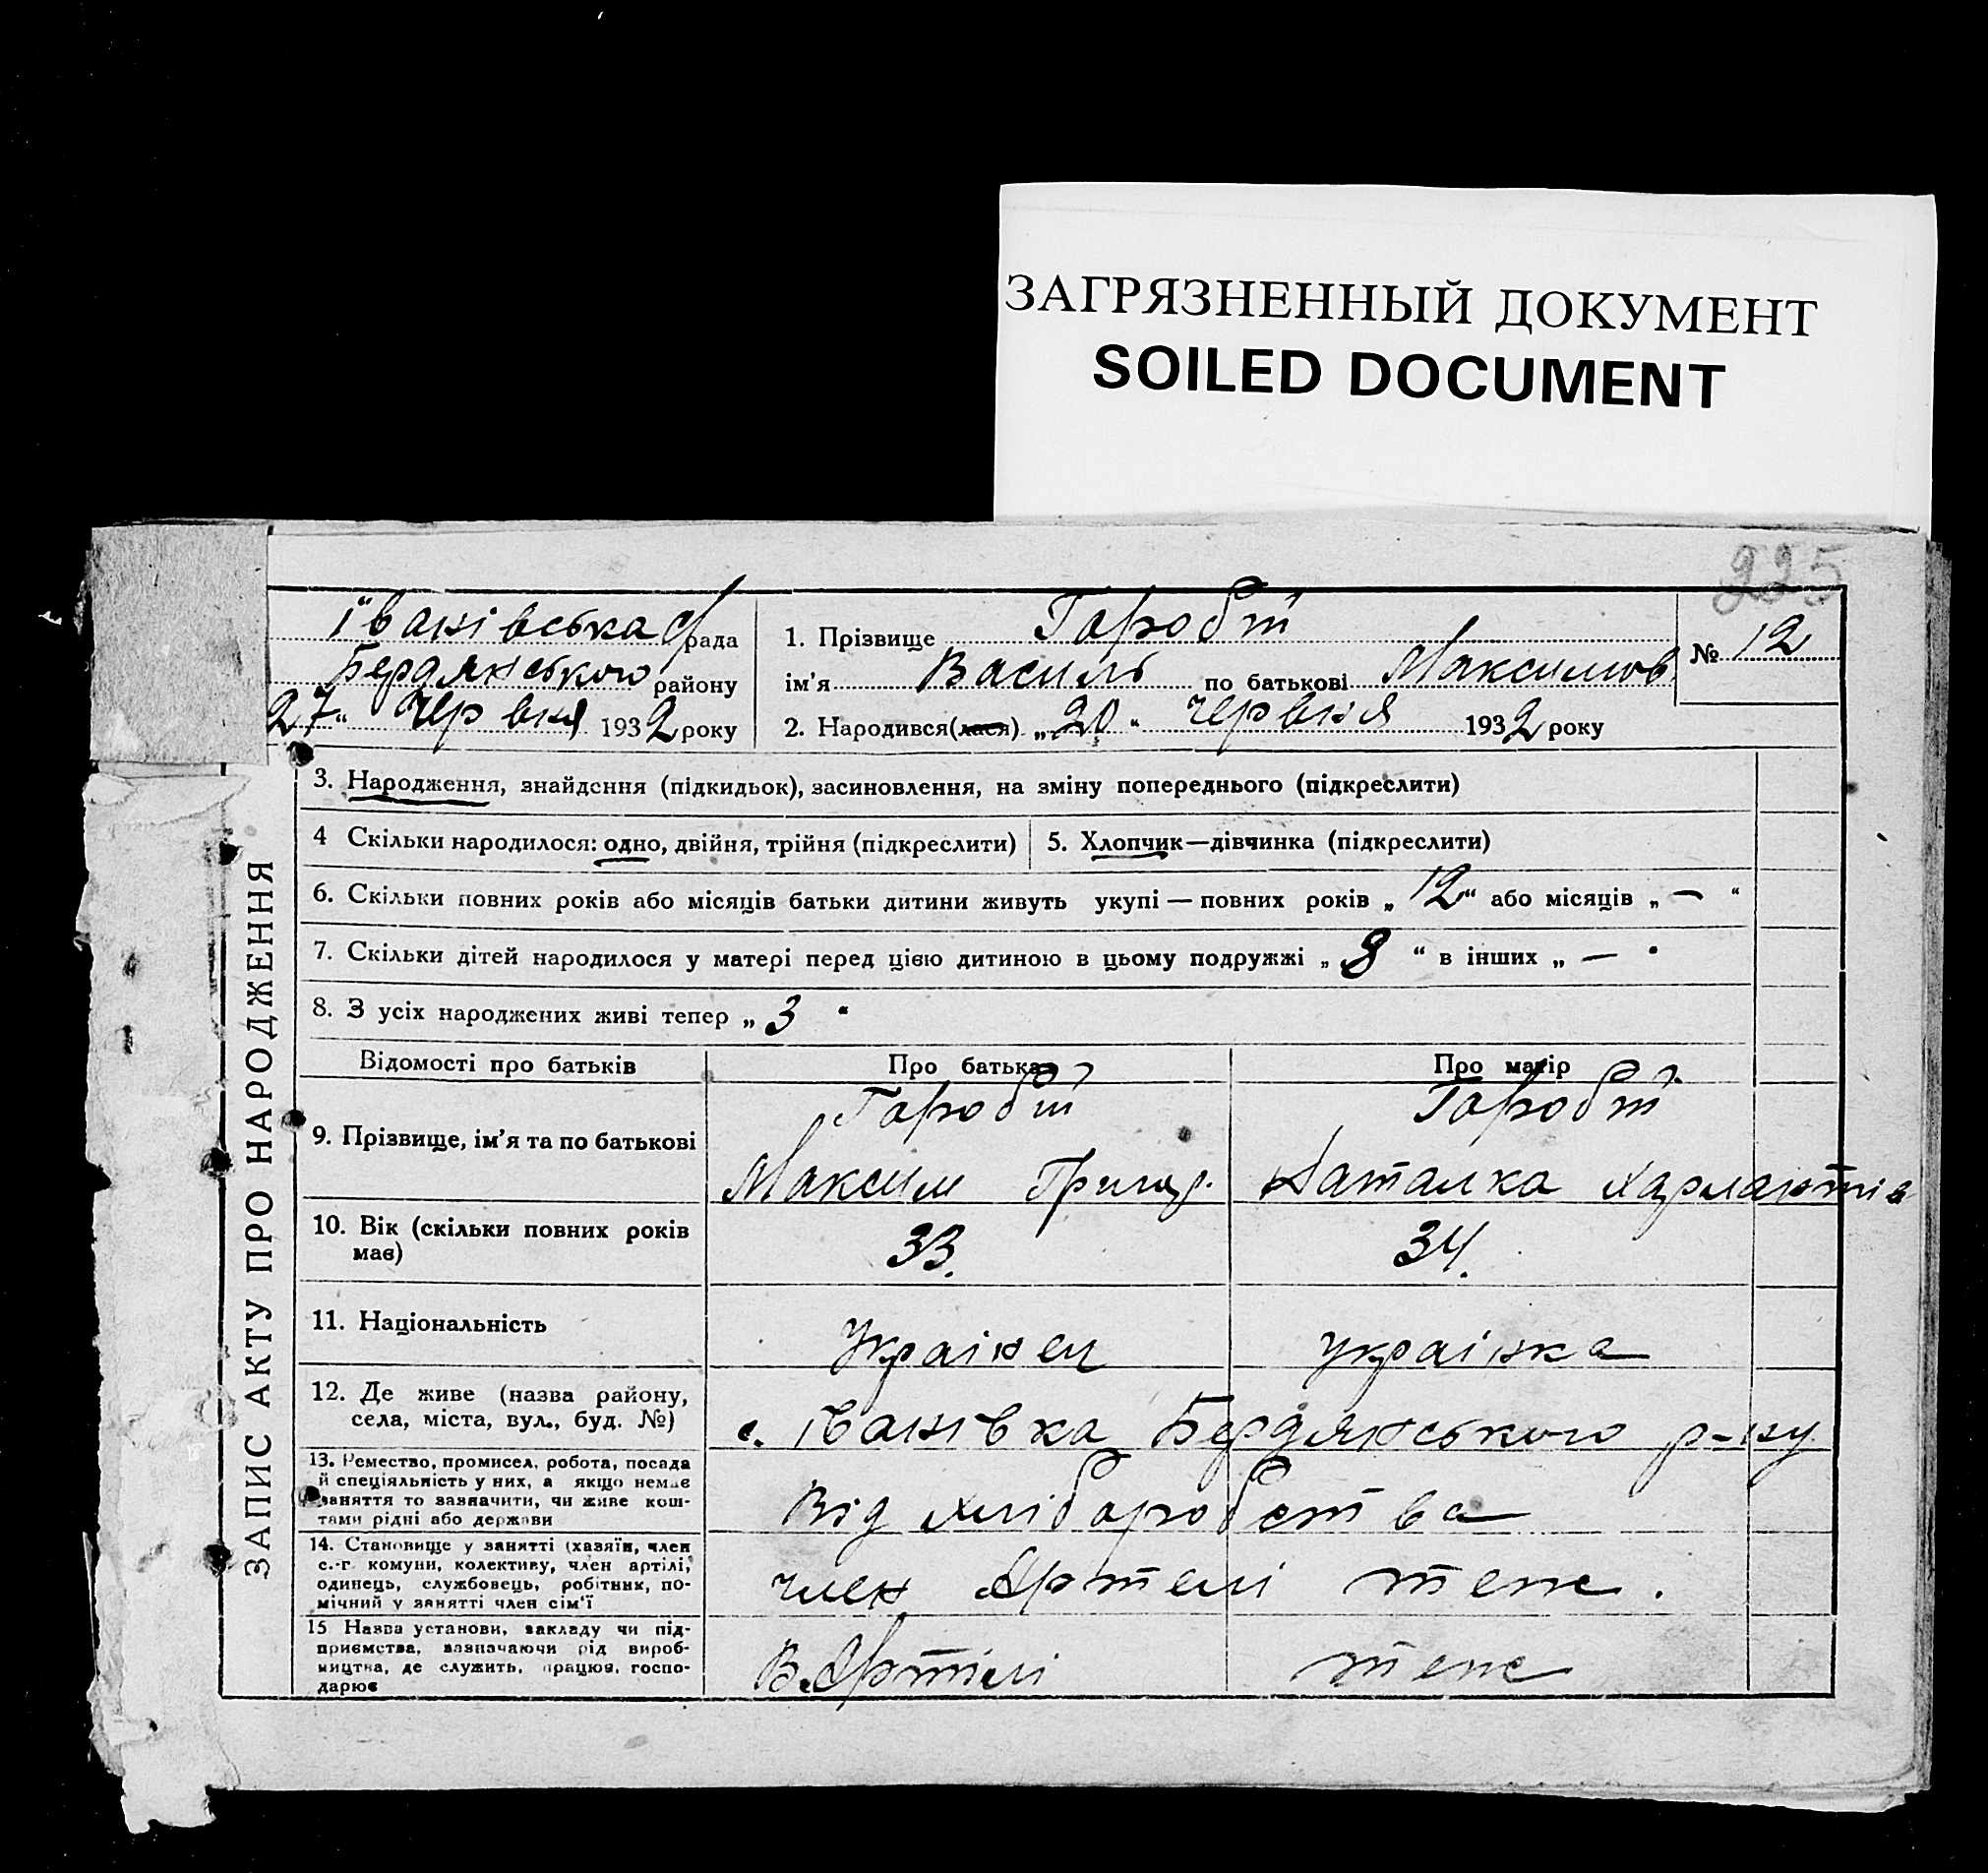 ЗАГРЯЗНЕННЫЙ ДОКУМЕНТ
SOILED DOCUMENT
225
Іванівська с/рада
Бердянського району
27 " Червня 1932 року
1. Прізвище Горобт
ім'я Василь по батькові Максимов.
2. Народився(лася) „20 " червня 1932 року
№ 12
ЗАПИС АКТУ ПРО НАРОДЖЕННЯ
3. Народження, знайдення (підкидьок), засиновлення, на зміну попереднього (підкреслити)
4 Скільки народилося: одно, двійня, трійня (підкреслити)
5. Хлопчик—дівчинка (підкреслити)
6. Скільки повних років або місяців батьки дитини живуть укупі — повних років „ 12 “ або місяців „ — “
7. Скільки дітей народилося у матері перед цією дитиною в цьому подружжі „ 8 “ в інших „ — "
8. З усіх народжених живі тепер „ 3 “
Відомості про батьків
Про батька
Про матір
9. Прізвище, ім'я та по батькові
Горобт
Максим Григор.
Горобт
Наталка
10. Вік (скільки повних років
має)
33.
34.
11. Національність
Українец
українка
12. Де живе (назва району,
села, міста, вул., буд. №)
с. Іванівка Бердянського р-ну
13. Ремество, промисел, робота, посада
й спеціяльність у них, а якщо немає
заняття то зазначити, чи живе кош-
тами рідні або держави
Від хліборобства
14. Становище у занятті (хазяїн, член
с.-г. комуни, колективу, член артілі,
одинець, службовець, робітник, по-
мічний у занятті член сім'ї
член Артелі теж.
15 Назва установи, закладу чи під-
приємства, зазначаючи рід вироб-
ництва, де служить, працює, госпо-
дарює
В Артілі теж